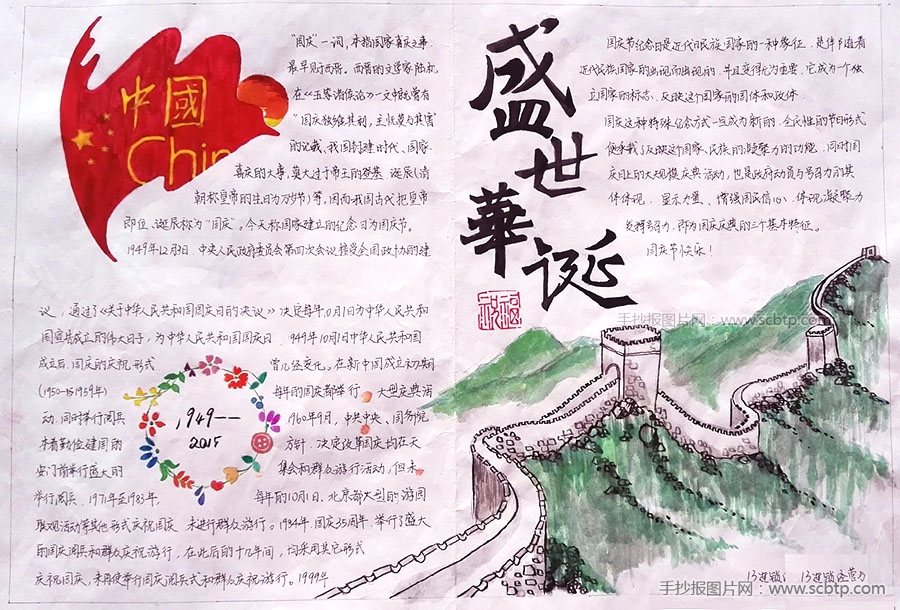 中國
China
"国庆"一词，本指国家喜庆之事、
最早见于西晋。西晋的文学家陆机
在《五等诸侯论》一文中就曾有
"国庆独飨其利，主忧莫与其害"
的记载、我国封建时代、国家
喜庆的大事，莫大过于帝王的登基、诞辰(清
朝称皇帝的生日为万岁节)等，因而我国古代把皇帝
即位、诞辰称为"国庆"。今天称国家建立的纪念日为国庆节。
1949年12月3日，中央人民政府委员会第四次会议接受全国政协的建
议，通过了《关于中华人民共和国国庆日的决议》决定每年10月1日为中华人民共和
国宣告成立的伟大日子，为中华人民共和国国庆日、 949年10月1日中华人民共和国
成立后，国庆的庆祝形式 曾几经变化。在新中国成立初期
(1950—1959年) 每年的国庆都举行 大型庆典活
动，同时举行阅兵 1960年9月，中央中央、国务院
本着勤俭建国的 方针，决定改革国庆
安门前举行盛大的 集会和群众游行活动，但未
举行阅兵、1971年至1983年、 每年的10月1日，北京都大型的游园
联欢活动等其他形式庆祝国庆，未进行群众游行。1984年，国庆35周年，举行了盛大
的国庆阅兵和群众庆祝游行，在此后的十几年间，均采用其它形式
庆祝国庆，未再使举行国庆阅兵式和群众庆祝游行。1999年
1949——
2015
盛世華诞
祝福
国庆节纪念日是近代民族国家的一种象征，是伴随着
近代民族国家的出现而出现的，并且变得尤为重要，它成为一个独
立国家的标志，反映这个国家的国体和政体
国庆这种特殊纪念方式一旦成为新的、全民性的节日形式
便承载了反映这个国家、民族的凝聚力的功能，同时国
庆日上的大规模庆典活动，也是政府动员与号召力的具
体体现，显示力量、增强国民信心，体现凝聚力
发挥号召力，即为国庆庆典的三个基本特征。
国庆节快乐！
手抄报图片网：www.scbtp.com
手抄报图片网：www.scbtp.com